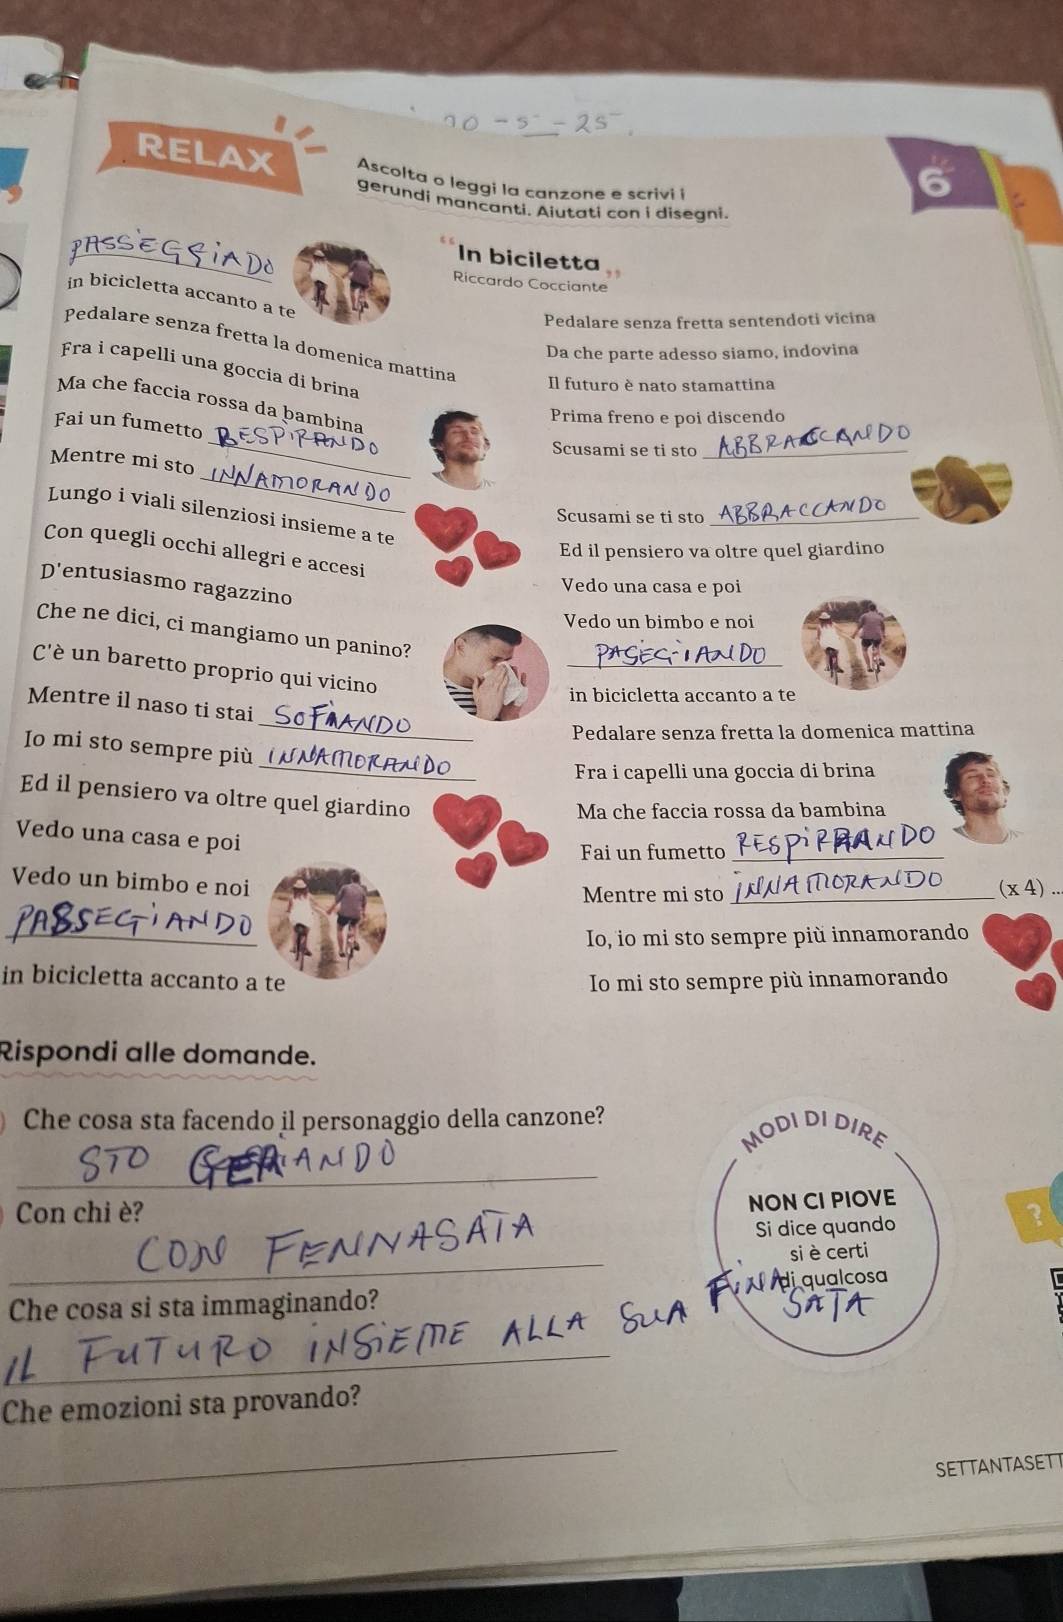 20 - 5 - 25
RELAX
Ascolta o leggi la canzone e scrivi i
gerundi mancanti. Aiutati con i disegni.
6
"In biciletta"
Riccardo Cocciante
PASSEGGIADO
in bicicletta accanto a te
Pedalare senza fretta la domenica mattina
Fra i capelli una goccia di brina
Ma che faccia rossa da bambina
Fai un fumetto RESPIRANDO
Mentre mi sto INNAMORANDO
Lungo i viali silenziosi insieme a te
Con quegli occhi allegri e accesi
D'entusiasmo ragazzino
Che ne dici, ci mangiamo un panino?
C'è un baretto proprio qui vicino
Mentre il naso ti stai SOFIANDO
Io mi sto sempre più INNAMORANDO
Ed il pensiero va oltre quel giardino
Vedo una casa e poi
Vedo un bimbo e noi
PASSEGIANDO
in bicicletta accanto a te
Pedalare senza fretta sentendoti vicina
Da che parte adesso siamo, indovina
Il futuro è nato stamattina
Prima freno e poi discendo
Scusami se ti sto ABBRACCANDO
Scusami se ti sto ABBRACCANDO
Ed il pensiero va oltre quel giardino
Vedo una casa e poi
Vedo un bimbo e noi
PASEGIANDO
in bicicletta accanto a te
Pedalare senza fretta la domenica mattina
Fra i capelli una goccia di brina
Ma che faccia rossa da bambina
Fai un fumetto RESPIRRANDO
Mentre mi sto INNAMORANDO (x 4) ...
Io, io mi sto sempre più innamorando
Io mi sto sempre più innamorando
Rispondi alle domande.
Che cosa sta facendo il personaggio della canzone?
STO
Con chi è?
CON FENNASATA
Che cosa si sta immaginando?
IL FUTURO INSIEME ALLA SUA FINA
SATA
Che emozioni sta provando?
MODI DI DIRE
NON CI PIOVE
Si dice quando
si è certi
di qualcosa
?
SETTANTASETT